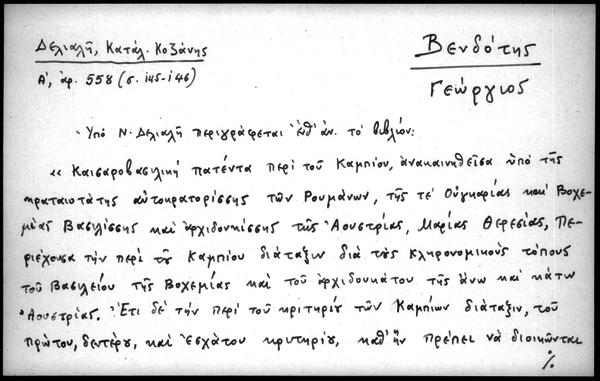 Δελιαλῆ, Κατάλ. Κοζάνης
Βενδότης
Α΄, ἀρ. 558 (σ. 145-146)
Γεώργιος
Ὑπὸ Ν. Δελιαλῆ περιγράφεται ἐνθ᾽ ἀν. τὸ βιβλίον:
«Καισαροβασιλικὴ πατέντα περὶ τοῦ Καμπίου, ἀνακαινηθεῖσα ὑπὸ τῆς
κραταιοτάτης αὐτοκρατορίσσης τῶν Ρουμάνων, τῆς τε Οὑγκαρίας καὶ Βοχε-
μίας Βασιλίσσης καὶ ἀρχιδουκίσσης τῆς Ἀουστρίας, Μαρίας Θερεσίας, Πε-
ριέχουσα τὴν περὶ τοῦ Καμπίου διάταξιν διὰ τοὺς κληρονομικοὺς τόπους
τοῦ Βασιλείου τῆς Βοχεμίας καὶ τοῦ ἀρχιδουκάτου τῆς ἄνω καὶ κάτω
Ἀουστρίας. Ἔτι δὲ τὴν περὶ τοῦ κριτηρίου τῶν Καμπίων διάταξιν, τοῦ
πρώτου, δευτέρου, καὶ ἐσχάτου κριτηρίου, καθ᾽ ἣν πρέπει νὰ διοικῶνται
%